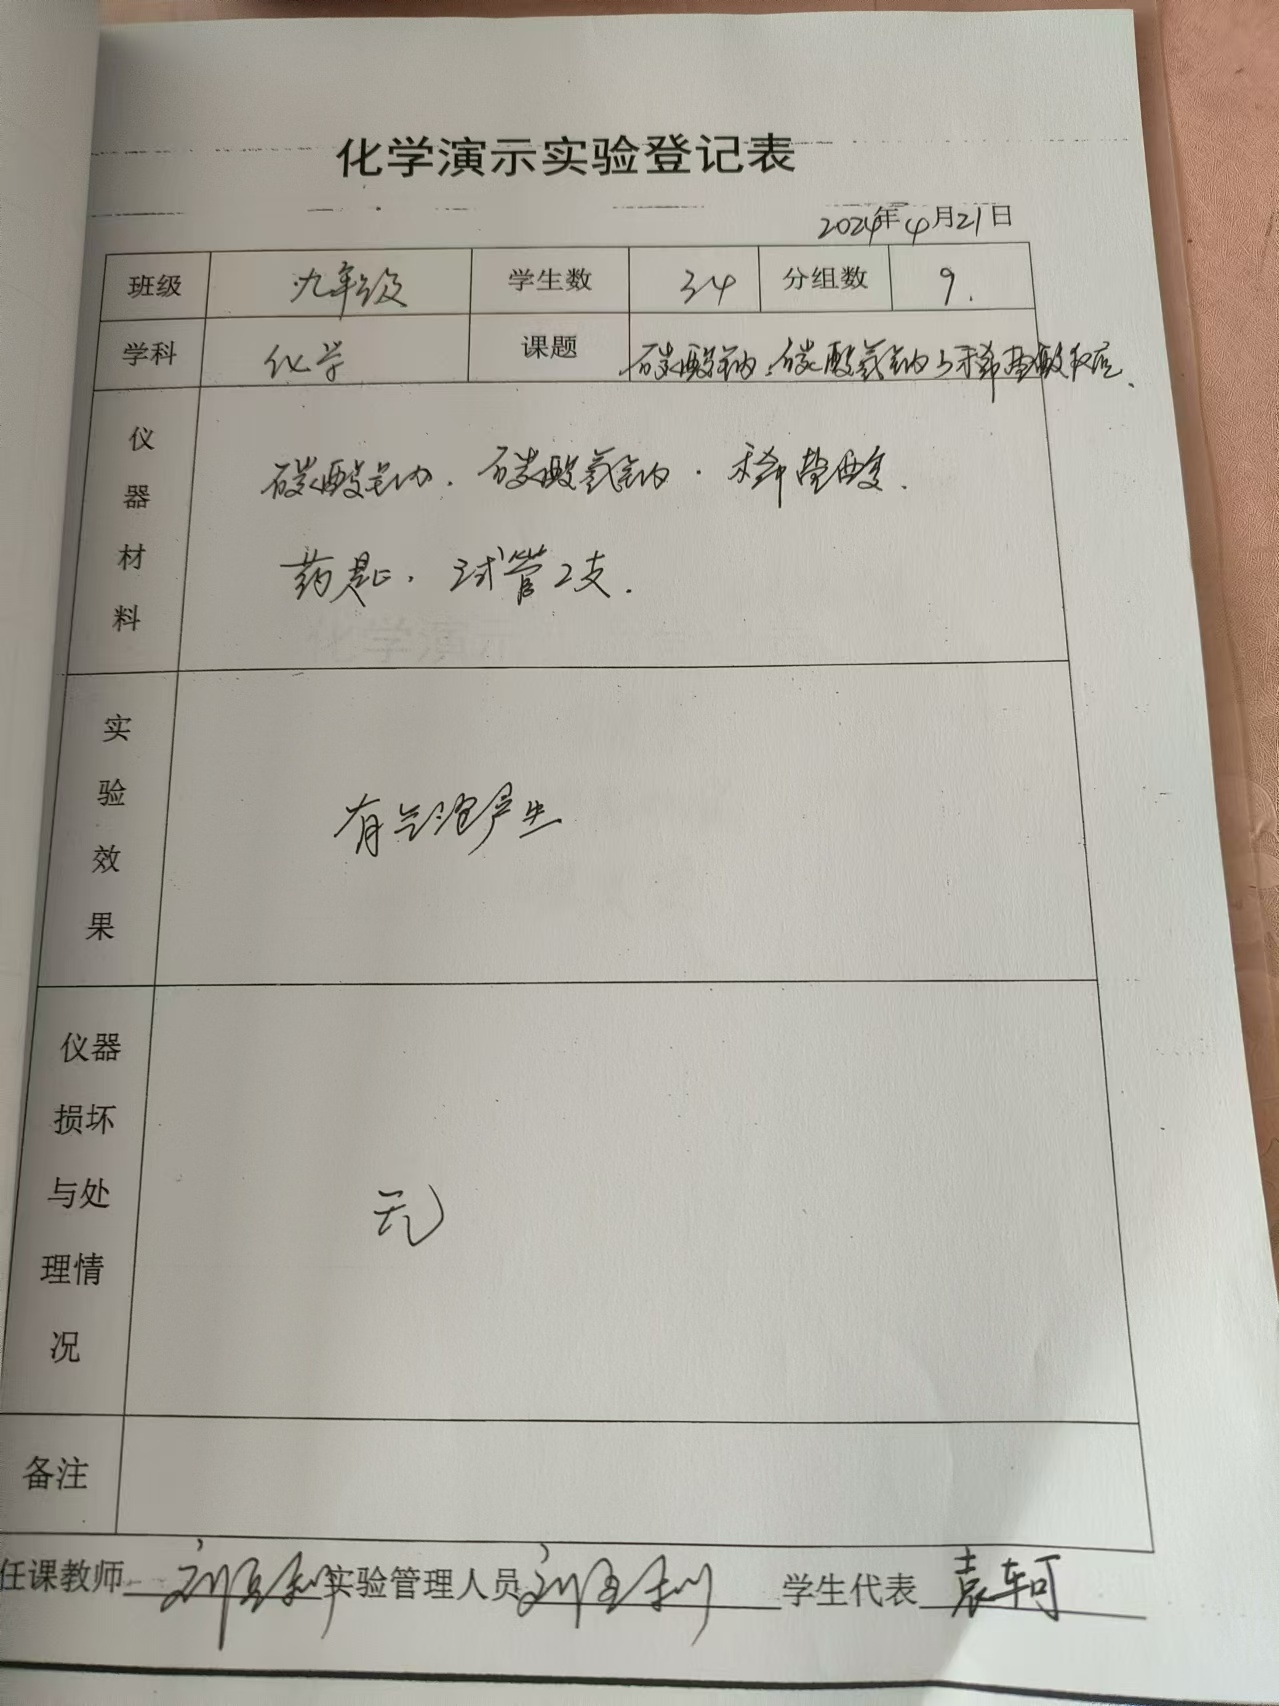 化学演示实验登记表
2024年4月21日
班级 九年级 学生数 34 分组数 9.
学科 化学 课题 碳酸钠、碳酸氢钠与稀盐酸反应.
仪器材料
碳酸钠. 碳酸氢钠. 稀盐酸.
药匙. 试管2支.
实验效果
有气泡产生
仪器
损坏
与处
理情
况
无
备注
任课教师 刘 实验管理人员 刘 学生代表 袁轲